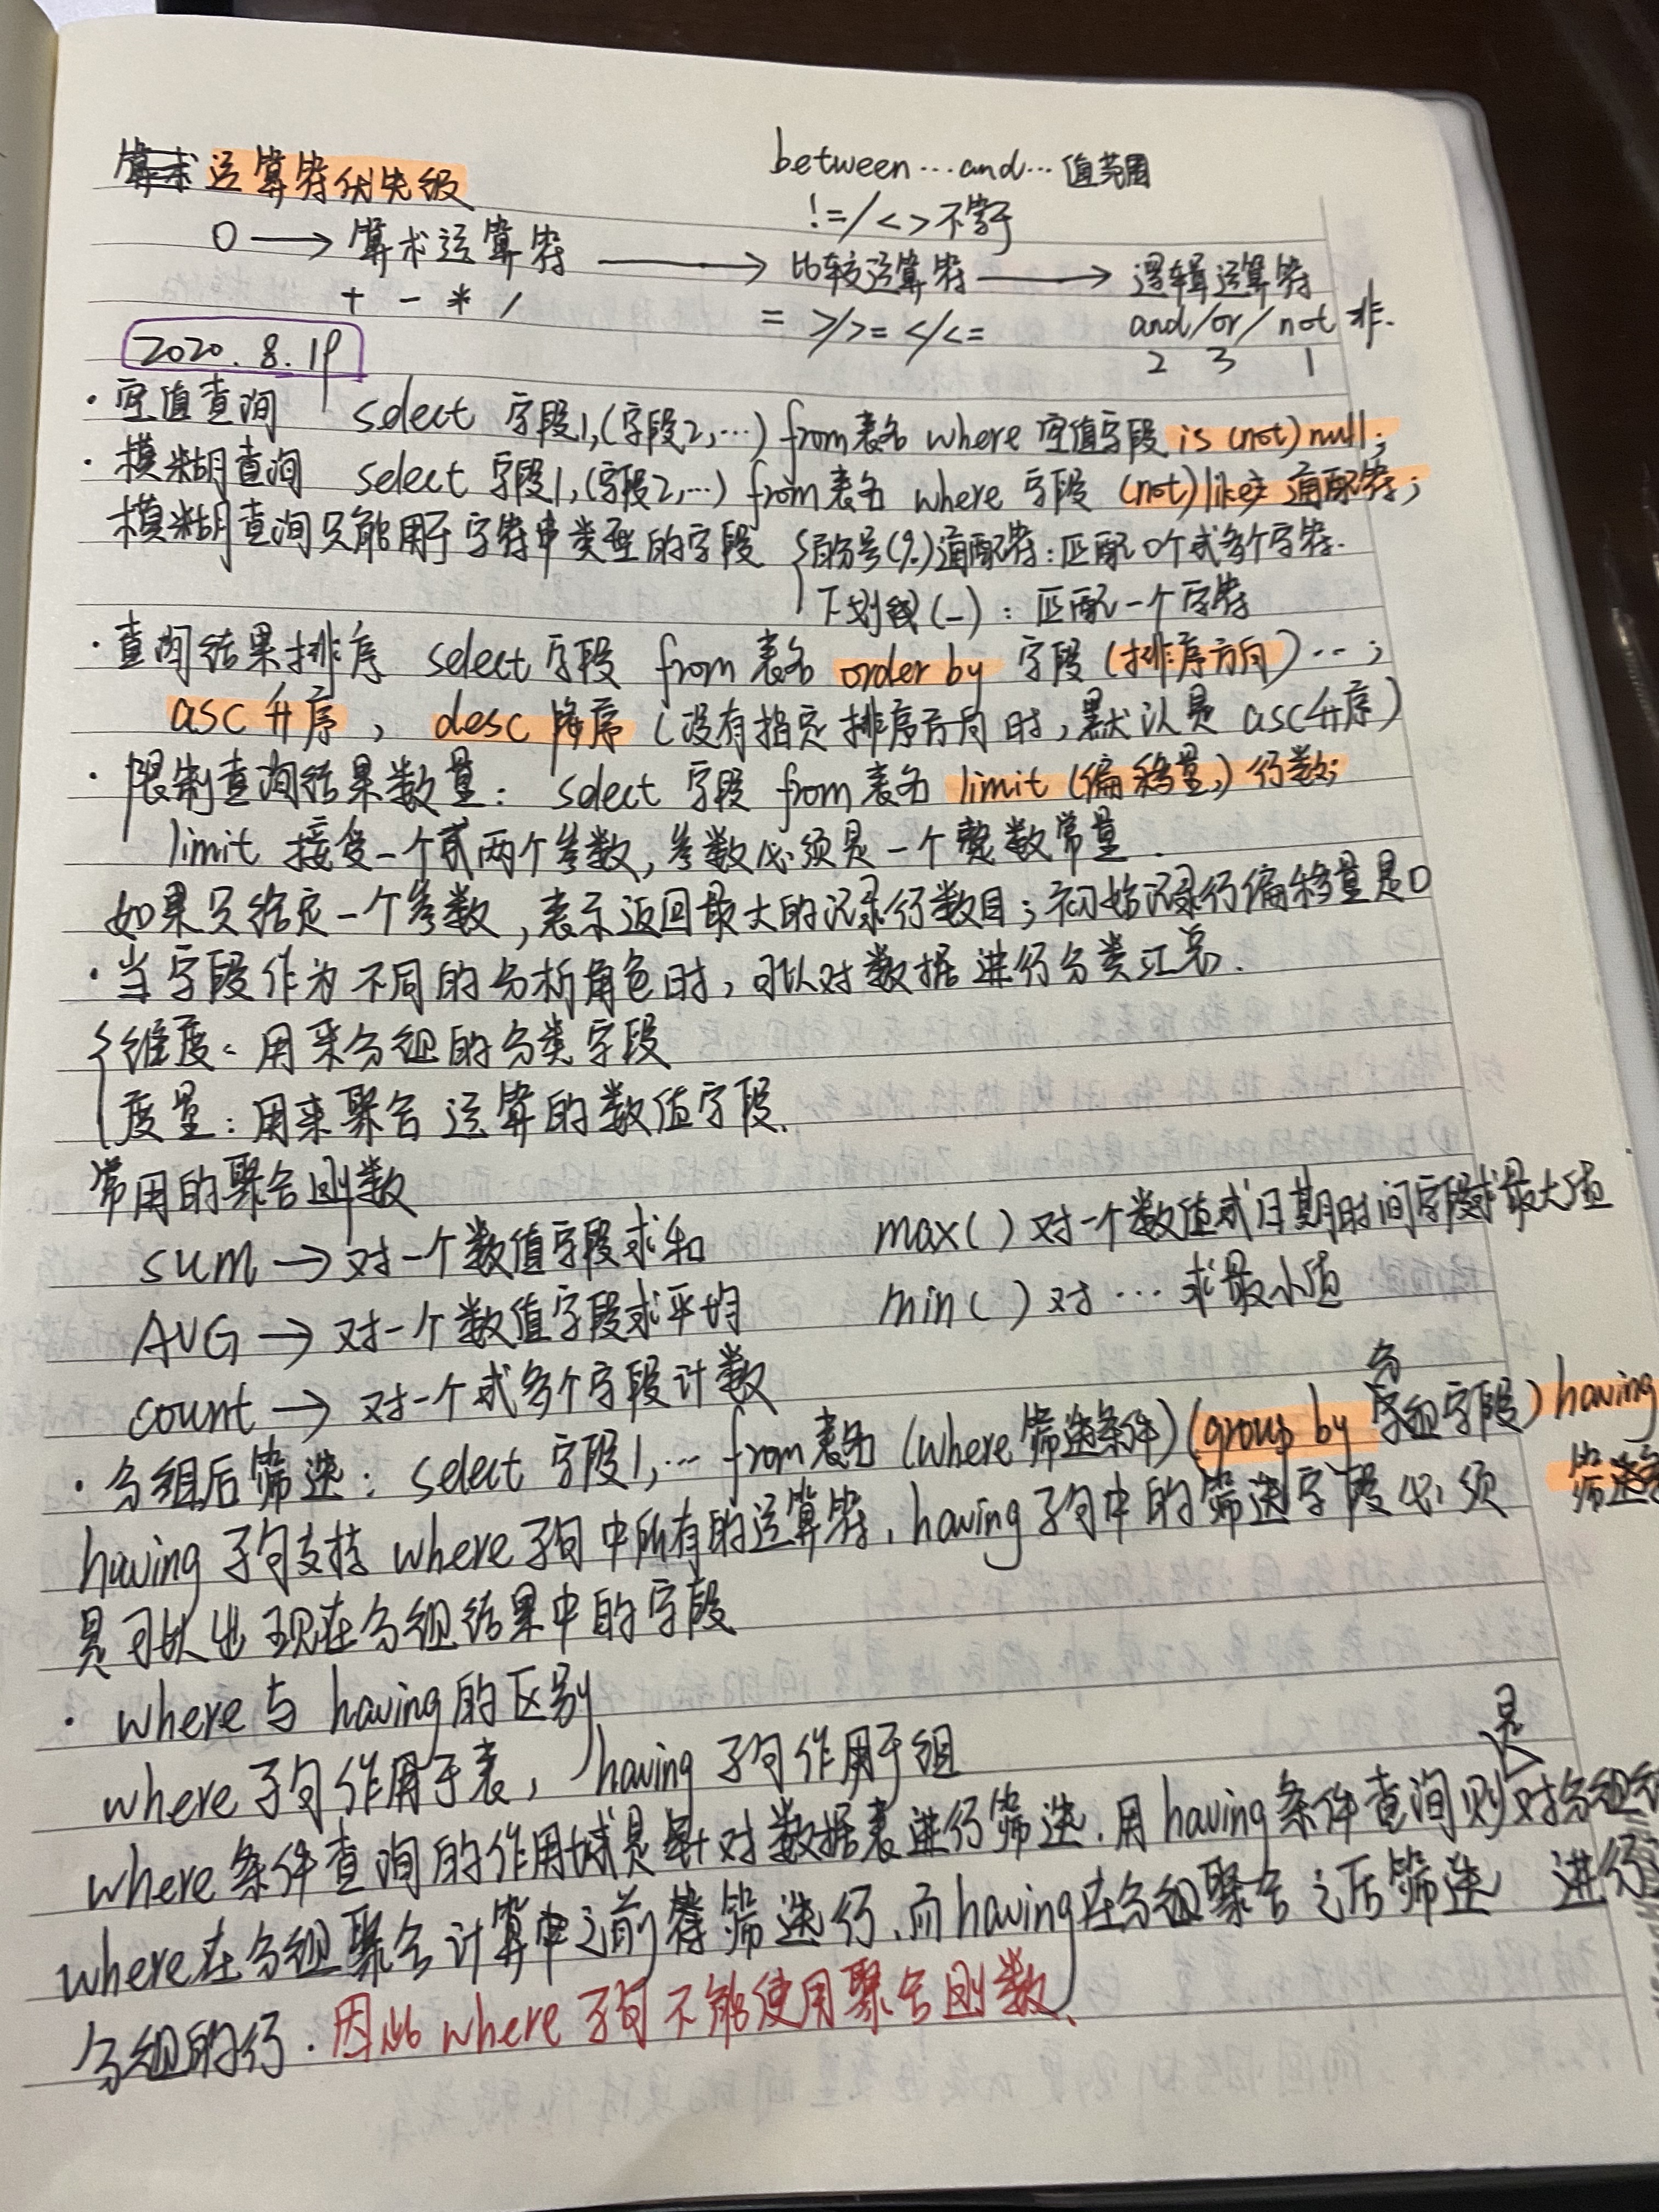 运算符优先级
between…and…值范围
!=/<>不等于
() → 算术运算符 → 比较运算符 → 逻辑运算符
+ - * /
= >/>= </<=
and/or/not 非.
2 3 1
2020.8.19
·空值查询 select 字段1,(字段2,…) from表名 where 空值字段 is (not) null;
·模糊查询 select 字段1,(字段2,…) from表名 where 字段 (not) like 通配符;
模糊查询只能用于字符串类型的字段 {百分号(%)通配符:匹配0个或多个字符.
下划线(_):匹配一个字符
·查询结果排序 select 字段 from 表名 order by 字段(排序方向)…;
asc升序, desc 降序(没有指定排序方向时,默认是asc升序)
·限制查询结果数量: select 字段 from表名 limit (偏移量,)行数;
limit 接受一个或两个参数,参数必须是一个整数常量.
如果只给定一个参数,表示返回最大的记录行数目;初始记录行偏移量是0
·当字段作为不同的分析角色时,可以对数据进行分类汇总.
{维度: 用来分组的分类字段
度量:用来聚合运算的数值字段.
常用的聚合函数
sum → 对一个数值字段求和 max()对一个数值或日期时间字段求最大值
AVG → 对一个数值字段求平均 min()对…求最小值
count → 对一个或多个字段计数
·分组后筛选: select 字段1,… from表名 (where筛选条件)(group by 分组字段) having
筛选
having 子句支持 where子句中所有的运算符,having子句中的筛选字段必须
是可以出现在分组结果中的字段
·where与having的区别
where子句作用于表, having子句作用于组
where条件查询的作用域是针对数据表进行筛选,用having条件查询则是对分组
进行
where在分组聚合计算之前筛选行,而having在分组聚合之后筛选
分组的行.因此where子句不能使用聚合函数.